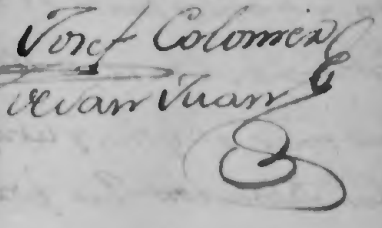 Josef Colomer
de San Juan